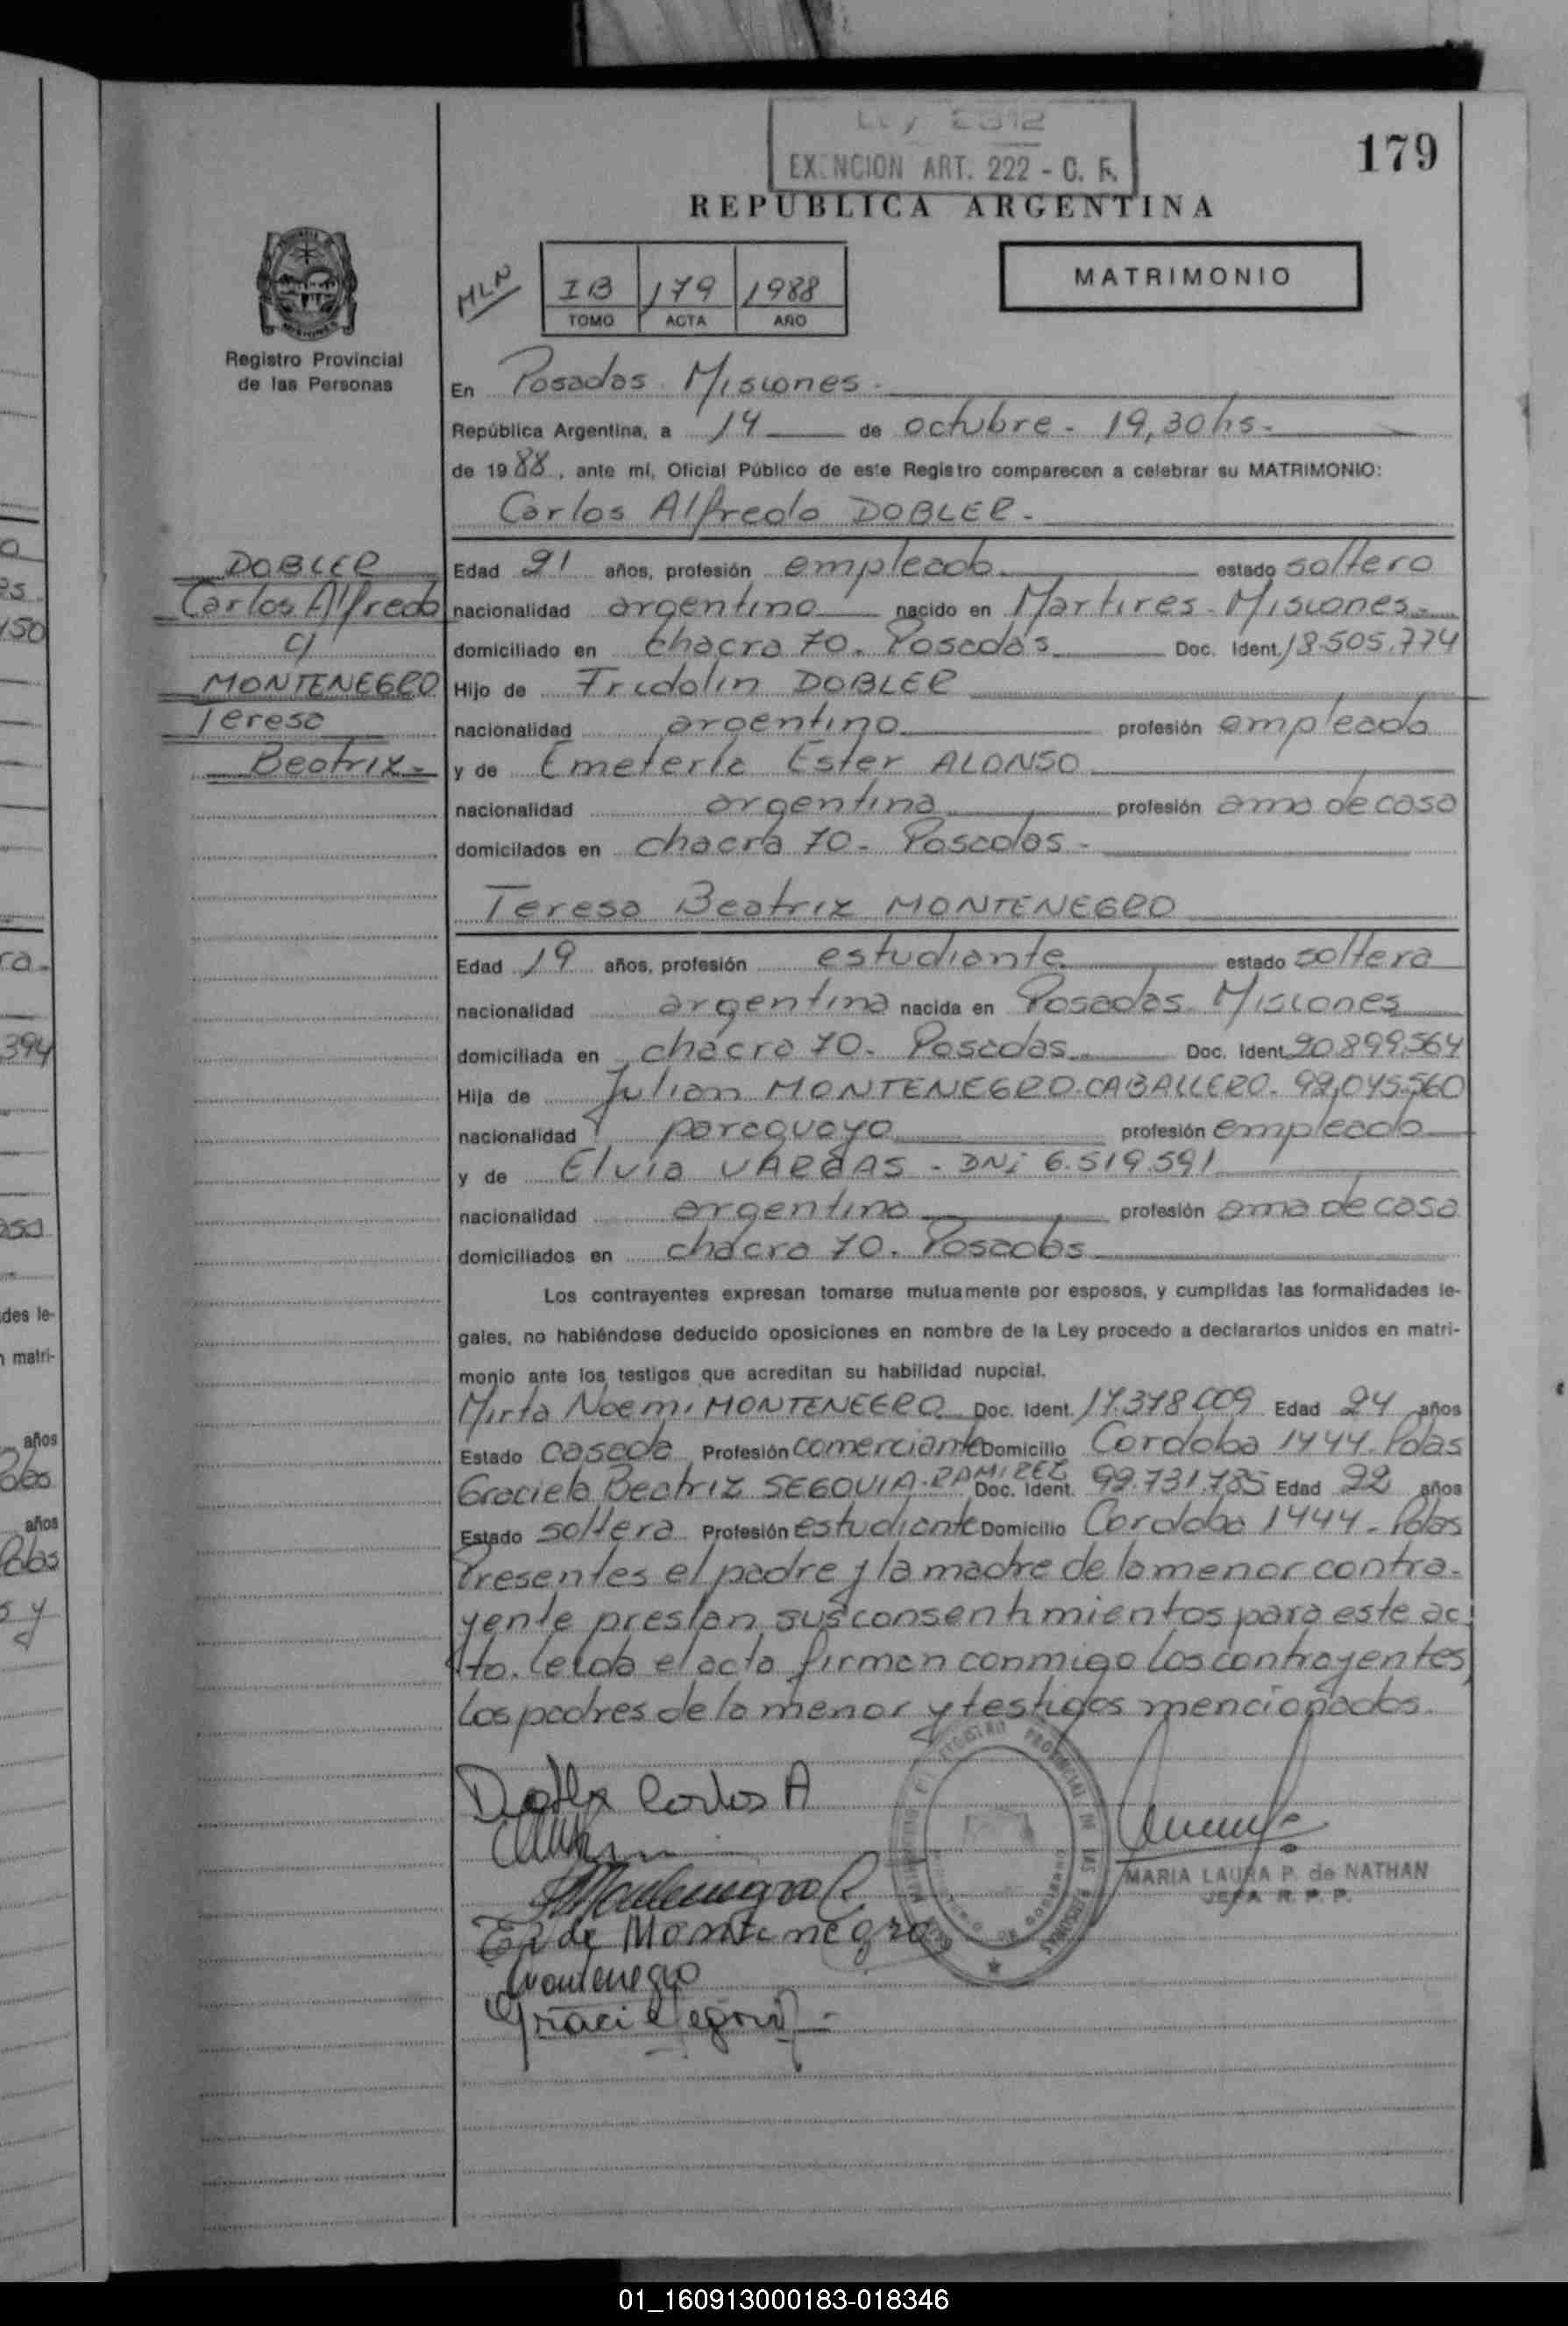 Ley 2312
EXENCION ART. 222 - C. F.
179
REPUBLICA ARGENTINA
MLN
IB 179 1988
TOMO ACTA AÑO
MATRIMONIO
Registro Provincial
de las Personas
En Posadas Misiones.
República Argentina, a 14 de octubre - 19,30 hs.
de 19 88, ante mí, Oficial Público de este Registro comparecen a celebrar su MATRIMONIO:
Carlos Alfredo DOBLER.
DOBLER
Carlos Alfredo
c/
MONTENEGRO
Teresa
Beatriz
Edad 21 años, profesión empleado estado soltero
nacionalidad argentino nacido en Martires - Misiones
domiciliado en chacra 70. Posadas Doc. Ident. 18.505.774
Hijo de Fridolin DOBLER
nacionalidad argentino profesión empleado
y de Emeteria Ester ALONSO
nacionalidad argentina profesión ama de casa
domicilados en chacra 70 - Posadas -
Teresa Beatriz MONTENEGRO
Edad 19 años, profesión estudiante estado soltera
nacionalidad argentina nacida en Posadas Misiones
domiciliada en chacra 70. Posadas Doc. Ident. 20.899.564
Hija de Julian MONTENEGRO-CABALLERO - 92.045.560
nacionalidad paraguayo profesión empleado
y de Elvia VARGAS - DNi 6.519.591
nacionalidad argentina profesión ama de casa
domiciliados en chacra 70. Posadas
Los contrayentes expresan tomarse mutuamente por esposos, y cumplidas las formalidades le-
gales, no habiéndose deducido oposiciones en nombre de la Ley procedo a declararlos unidos en matri-
monio ante los testigos que acreditan su habilidad nupcial.
Mirta Noemi MONTENEGRO Doc. Ident. 17.378.009 Edad 24 años
Estado casada Profesión comerciante Domicilio Cordoba 1444. Pdas
Graciela Beatriz SEGOVIA-RAMIREZ Doc. Ident. 92.731.785 Edad 22 años
Estado soltera Profesión estudiante Domicilio Cordoba 1444 - Pdas
Presentes el padre y la madre de la menor contra-
yente prestan sus consentimientos para este ac-
to. leida el acta firman conmigo los contrayentes,
los padres de la menor y testigos mencionados.
Dobler Carlos A
Montenegro C
E V de Montenegro
Montenegro
MARIA LAURA P. de NATHAN
JEFA R. P. P.
REGISTRO PROVINCIAL DE LAS PERSONAS
años
394
des le-
matri-
años
Pdas
años
Pdas
s y
01_160913000183-018346